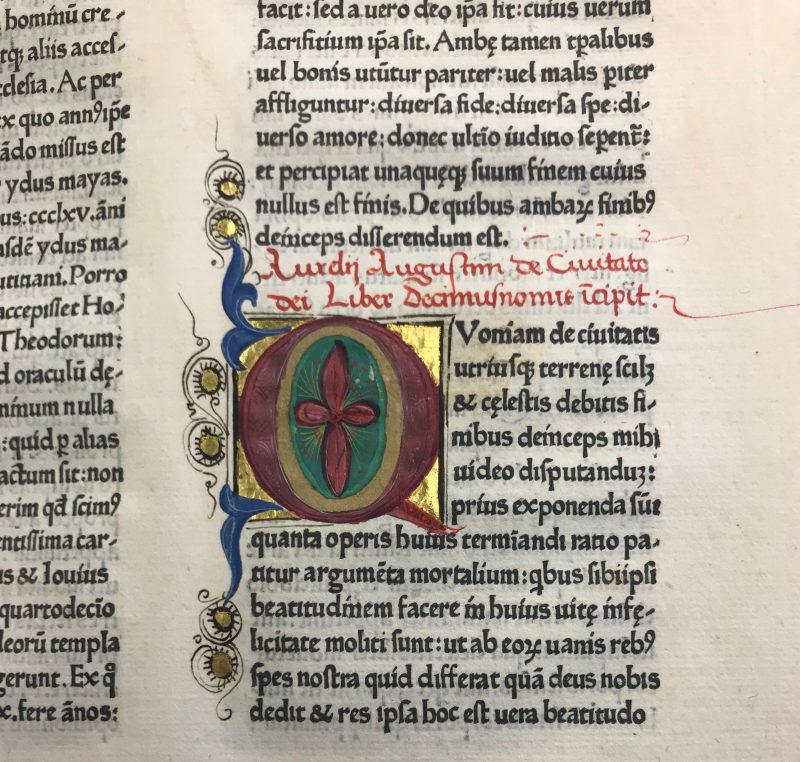 hominū cre⸗
tqꝫ aliis acces⸗
cclesia. Ac per
ex quo annꝰ ip̄e
ādo missus est
ydus mayas.
us: ccclxv. āni
asdē ydus ma⸗
utinani. Porro
accepisset Ho⸗
Theodorum:
d oraculū dę⸗
minum nulla
: quid ꝑ alias
actum sit: non
erim qđ scimꝰ
entissima car⸗
s & Iouius
quartodecīo
deorū templa
gerunt. Ex q̊
x. fere ānos:
facit: sed a uero deo ip̄a fit: cuius uerum
sacrifitium ip̄a sit. Ambę tamen tꝑalibus
uel bonis utūtur pariter: uel malis ꝑiter
affliguntur: diuersa fide: diuersa spe: di⸗
uerso amore: donec ultīo iuditio seꝑent᷑:
et percipiat unaquęqꝫ suum finem cuius
nullus est finis. De quibus ambaꝝ finibꝰ
deinceps disserendum est.
Aurelij Augustini de Ciuitate
dei Liber Decimusnonus īcipit:
QVoniam de ciuitatis
utriusqꝫ terrenę scilꝫ
& cęlestis debitis fi⸗
nibus deinceps mihi
uideo disputanduꝫ:
prius exponenda sūt
quanta operis huius termīandi ratio pa⸗
titur argumēta mortalium: ꝗbus sibiipsi
beatitudinem facere in huius uitę infę⸗
licitate moliti sunt: ut ab eoꝝ uanis rebꝰ
spes nostra quid differat quā deus nobis
dedit & res ipsa hoc est uera beatitudo